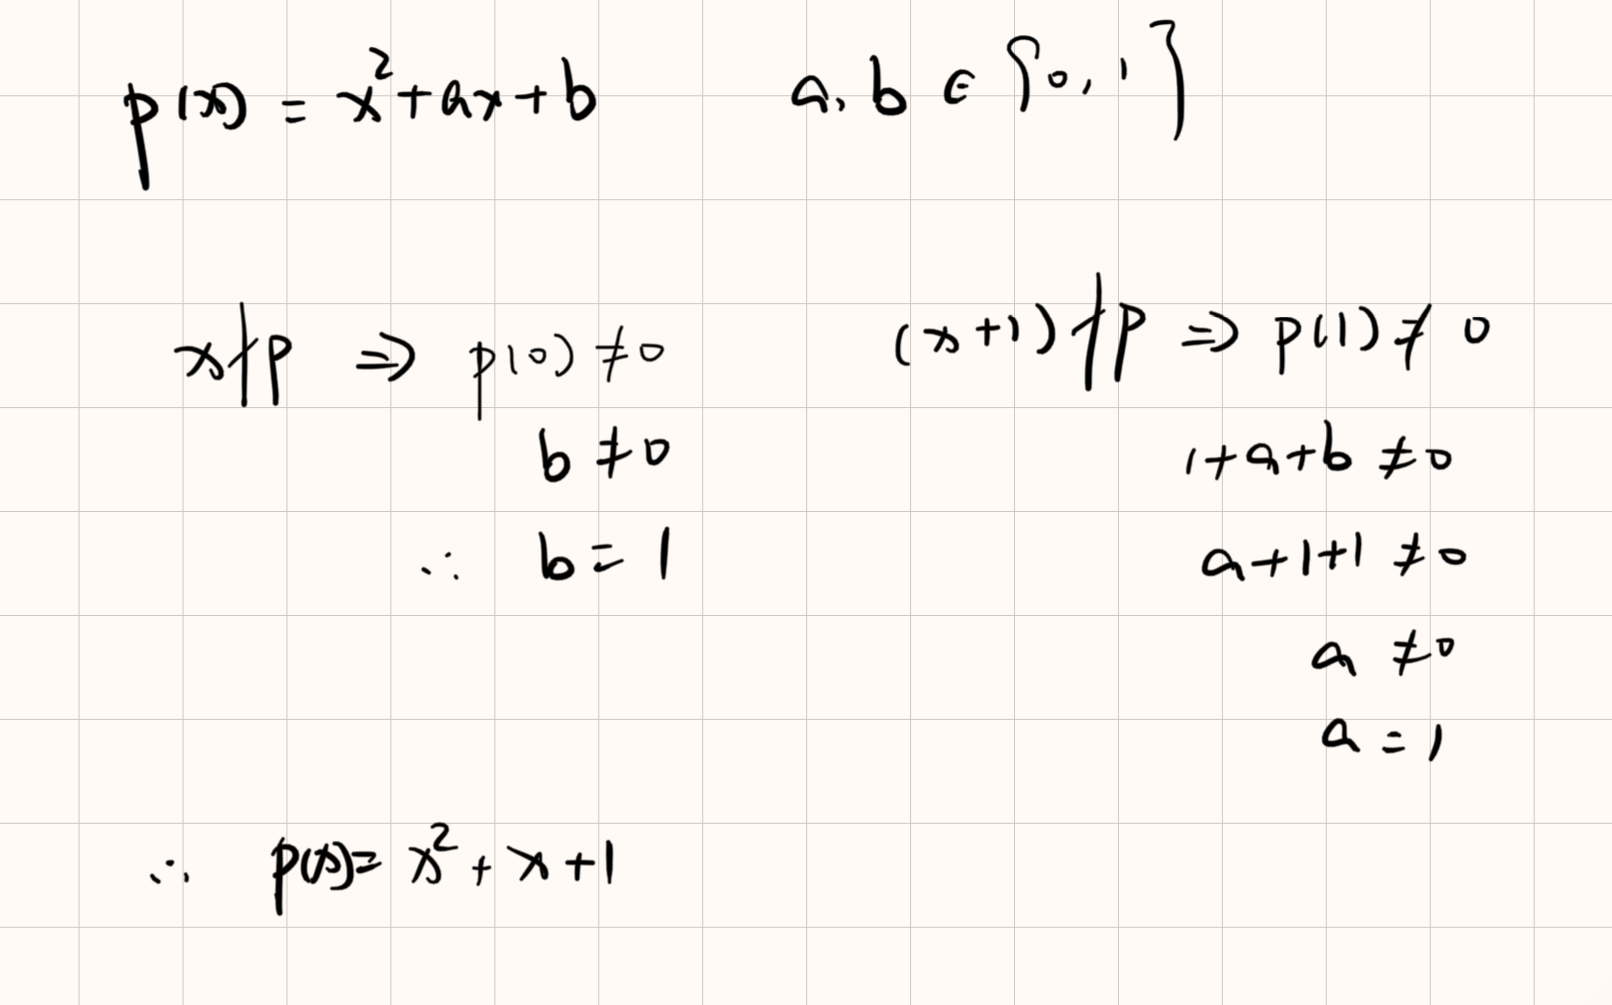 p(x) = x²+ax+b    a, b ∈ {0, 1}
x∤p ⇒ p(0) ≠0
b ≠0
∴ b = 1
(x+1)∤p ⇒ p(1) ≠ 0
1+a+b ≠0
a+1+1 ≠0
a ≠0
a = 1
∴ p(x)= x²+x+1